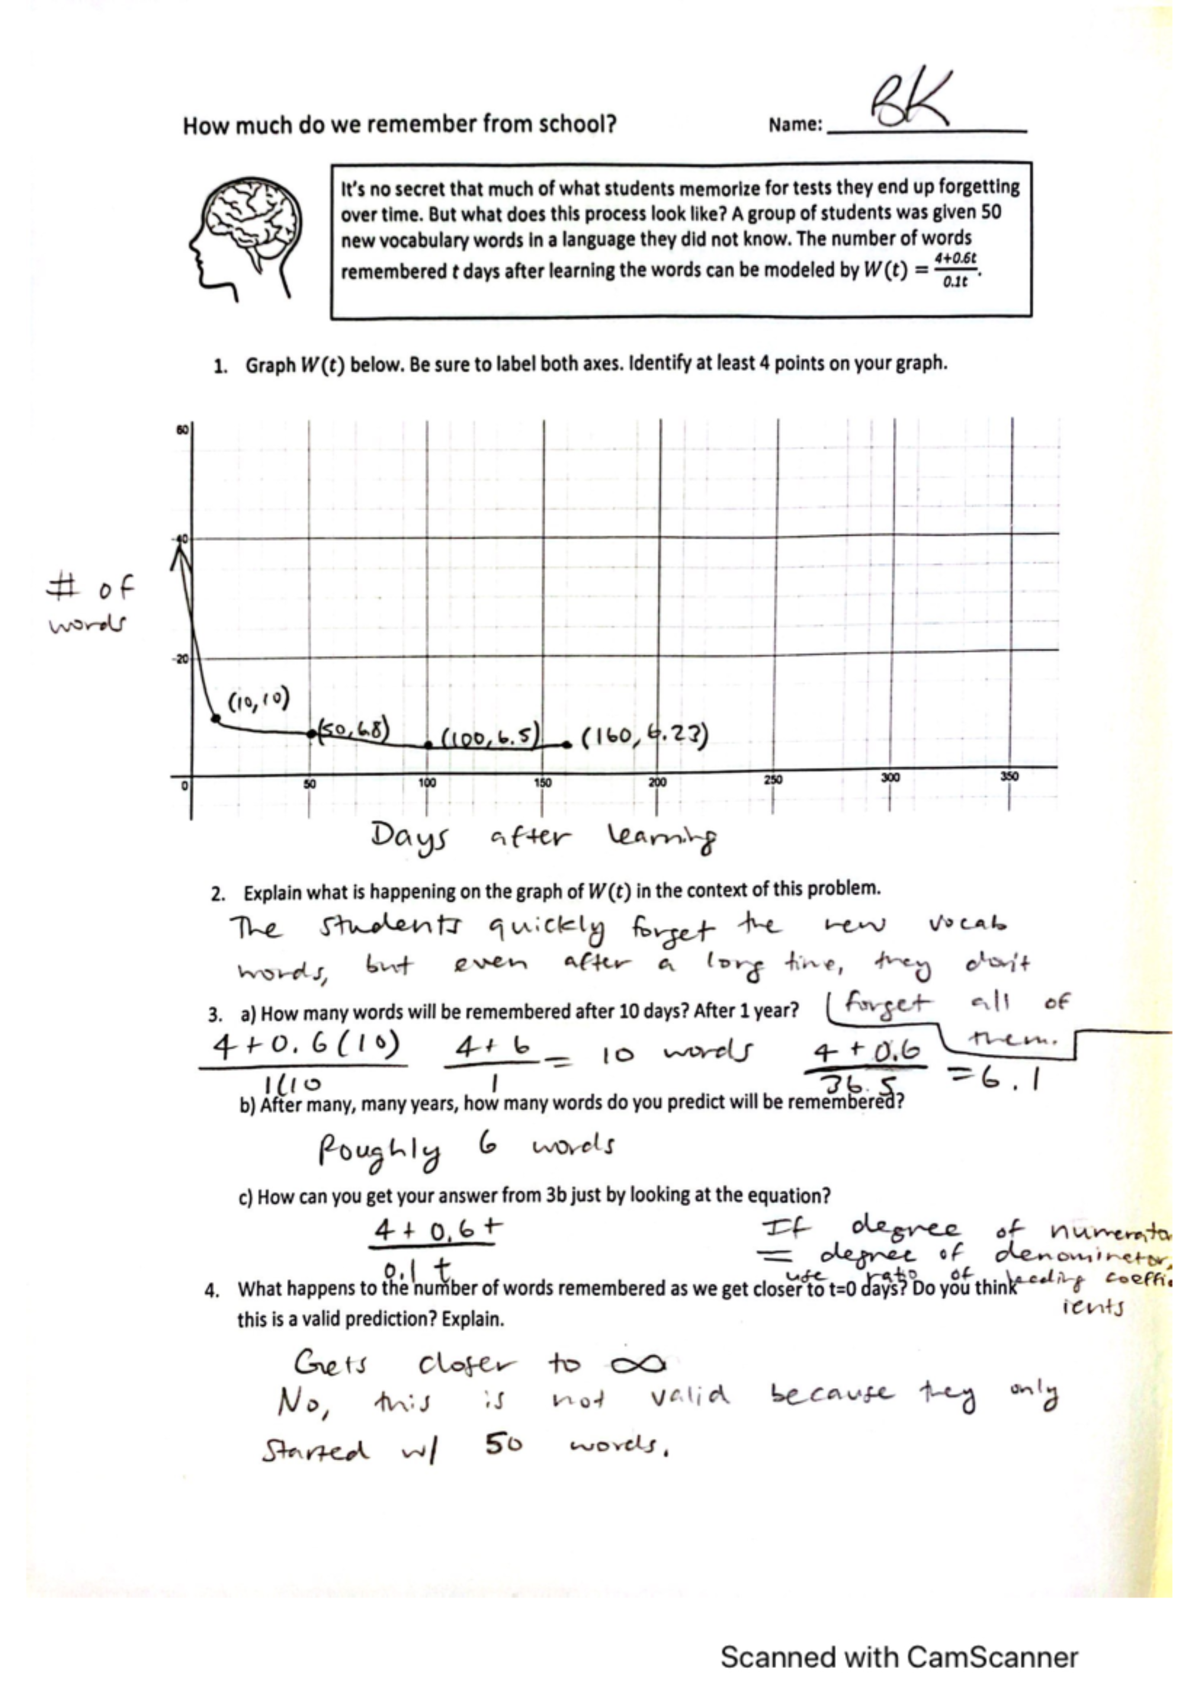 BK
How much do we remember from school? Name:
It's no secret that much of what students memorize for tests they end up forgetting
over time. But what does this process look like? A group of students was given 50
new vocabulary words in a language they did not know. The number of words
remembered t days after learning the words can be modeled by W(t) = 4+0.6t / 0.1t.
1. Graph W(t) below. Be sure to label both axes. Identify at least 4 points on your graph.
60
40
# of
words
20
(10,10)
(50,6.8)
(100,6.5)
(160,6.23)
0 50 100 150 200 250 300 350
Days after learning
2. Explain what is happening on the graph of W(t) in the context of this problem.
The students quickly forget the new vocab
words, but even after a long time, they don't
forget all of
them.
3. a) How many words will be remembered after 10 days? After 1 year?
4+0.6(10) / 1(10 4+6 / 1 = 10 words 4+0.6 / 36.5 = 6.1
b) After many, many years, how many words do you predict will be remembered?
Roughly 6 words
c) How can you get your answer from 3b just by looking at the equation?
4+0.6t / 0.1t
If degree of numerato
= degree of denominator,
use ratio of leading coeffic
ients
4. What happens to the number of words remembered as we get closer to t=0 days? Do you think
this is a valid prediction? Explain.
Gets closer to ∞
No, this is not valid because they only
started w/ 50 words.
Scanned with CamScanner